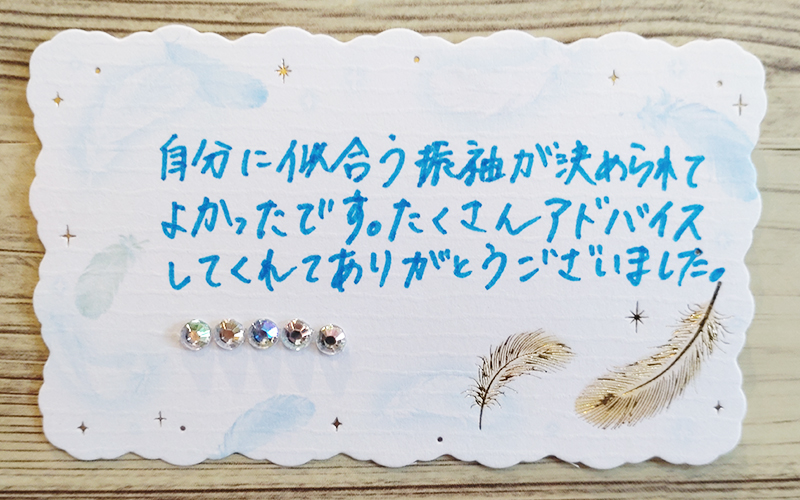 自分に似合う振袖が決められて
よかったです。たくさんアドバイス
してくれてありがとうございました。